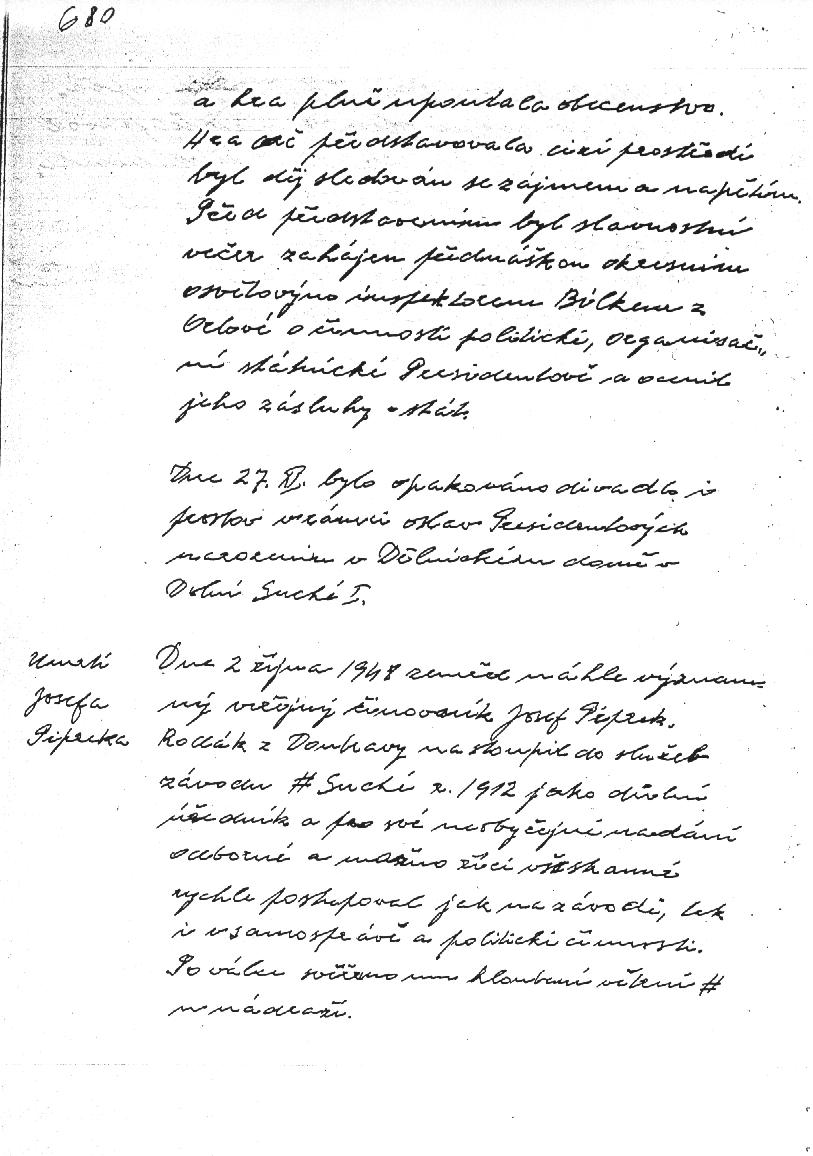 680
a hra plně upoutala obecenstvo.
Hra ač představovala cizí prostředí
byl děj sledován se zájmem a napětím.
Před představením byl slavnostní
večer zahájen přednáškou okresním
osvětovým inspektorem Bílkem z
Orlové o činnosti politické, organisač„
ní státnické Presidentově a ocenil
jeho zásluhy o stát.
Dne 27. IX. bylo opakováno divadlo i
proslov v rámci oslav Presidentových
narozenin v Dělnickém domě v
Dolní Suché I.
Úmrtí
Josefa
Pipreka
Dne 2 října 1948 zemřel náhle význam=
ný veřejný činovník Josef Piprek.
Rodák z Doubravy nastoupil do služeb
závodu # Suché r. 1912 jako důlní
úředník a pro své neobyčejné nadání
odborné a možno říci všeskanné
rychle postupoval jak na závodě, tak
i v samosprávě a politické činnosti.
Po válce svěřeno mu hloubení větrní #
u nádraží.